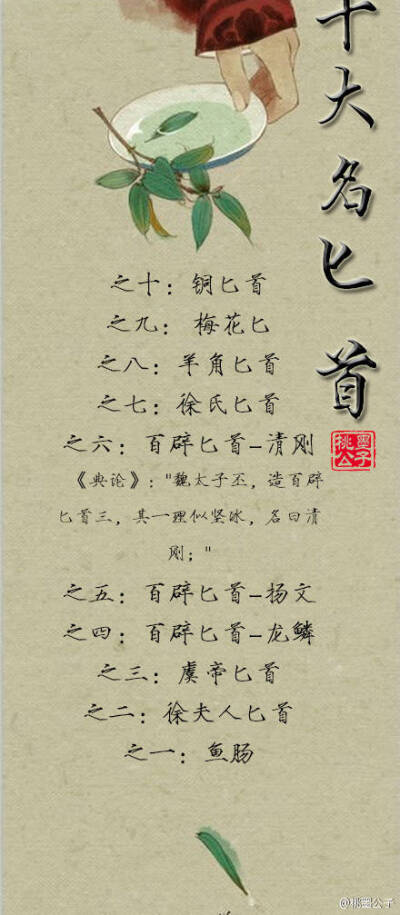 十大名匕首
桃墨
公子
之十：铜匕首
之九：梅花匕
之八：羊角匕首
之七：徐氏匕首
之六：百辟匕首-清刚
《典论》："魏太子丕，造百辟
匕首三，其一理似坚冰，名曰清
刚；"
之五：百辟匕首-扬文
之四：百辟匕首-龙鳞
之三：虞帝匕首
之二：徐夫人匕首
之一：鱼肠
@桃墨公子